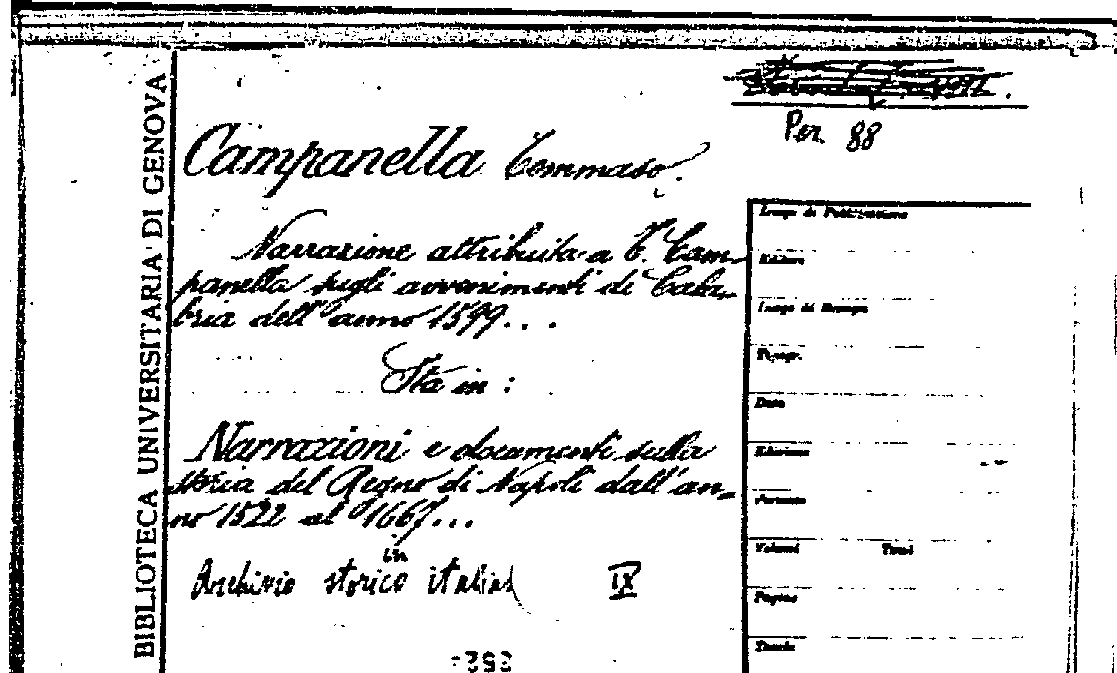 BIBLIOTECA UNIVERSITARIA DI GENOVA
Per. 88
Campanella Tommaso.
Narrazione attribuita a T. Cam-
panella sugli avvenimenti di Cala-
bria dell'anno 1599...
Sta in :
Narrazioni e documenti sulla
storia del Regno di Napoli dall'an-
no 1522 al 1667...
in
Archivio storico italiano
IX
Luogo di Pubblicazione
Editore
Luogo di Stampa
Tipogr.
Data
Edizione
Formato
Volumi Tomi
Pagine
Tavole